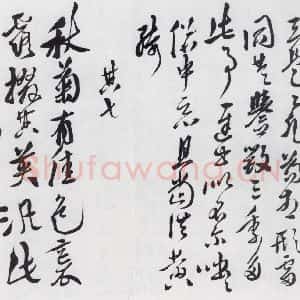 是非苟相形雷
同共譽毀三季多
此事達士似不尔咄
俗中且當從黃
綺
其七
秋菊有佳色裛
露掇其英汎此
Shufawang.CN